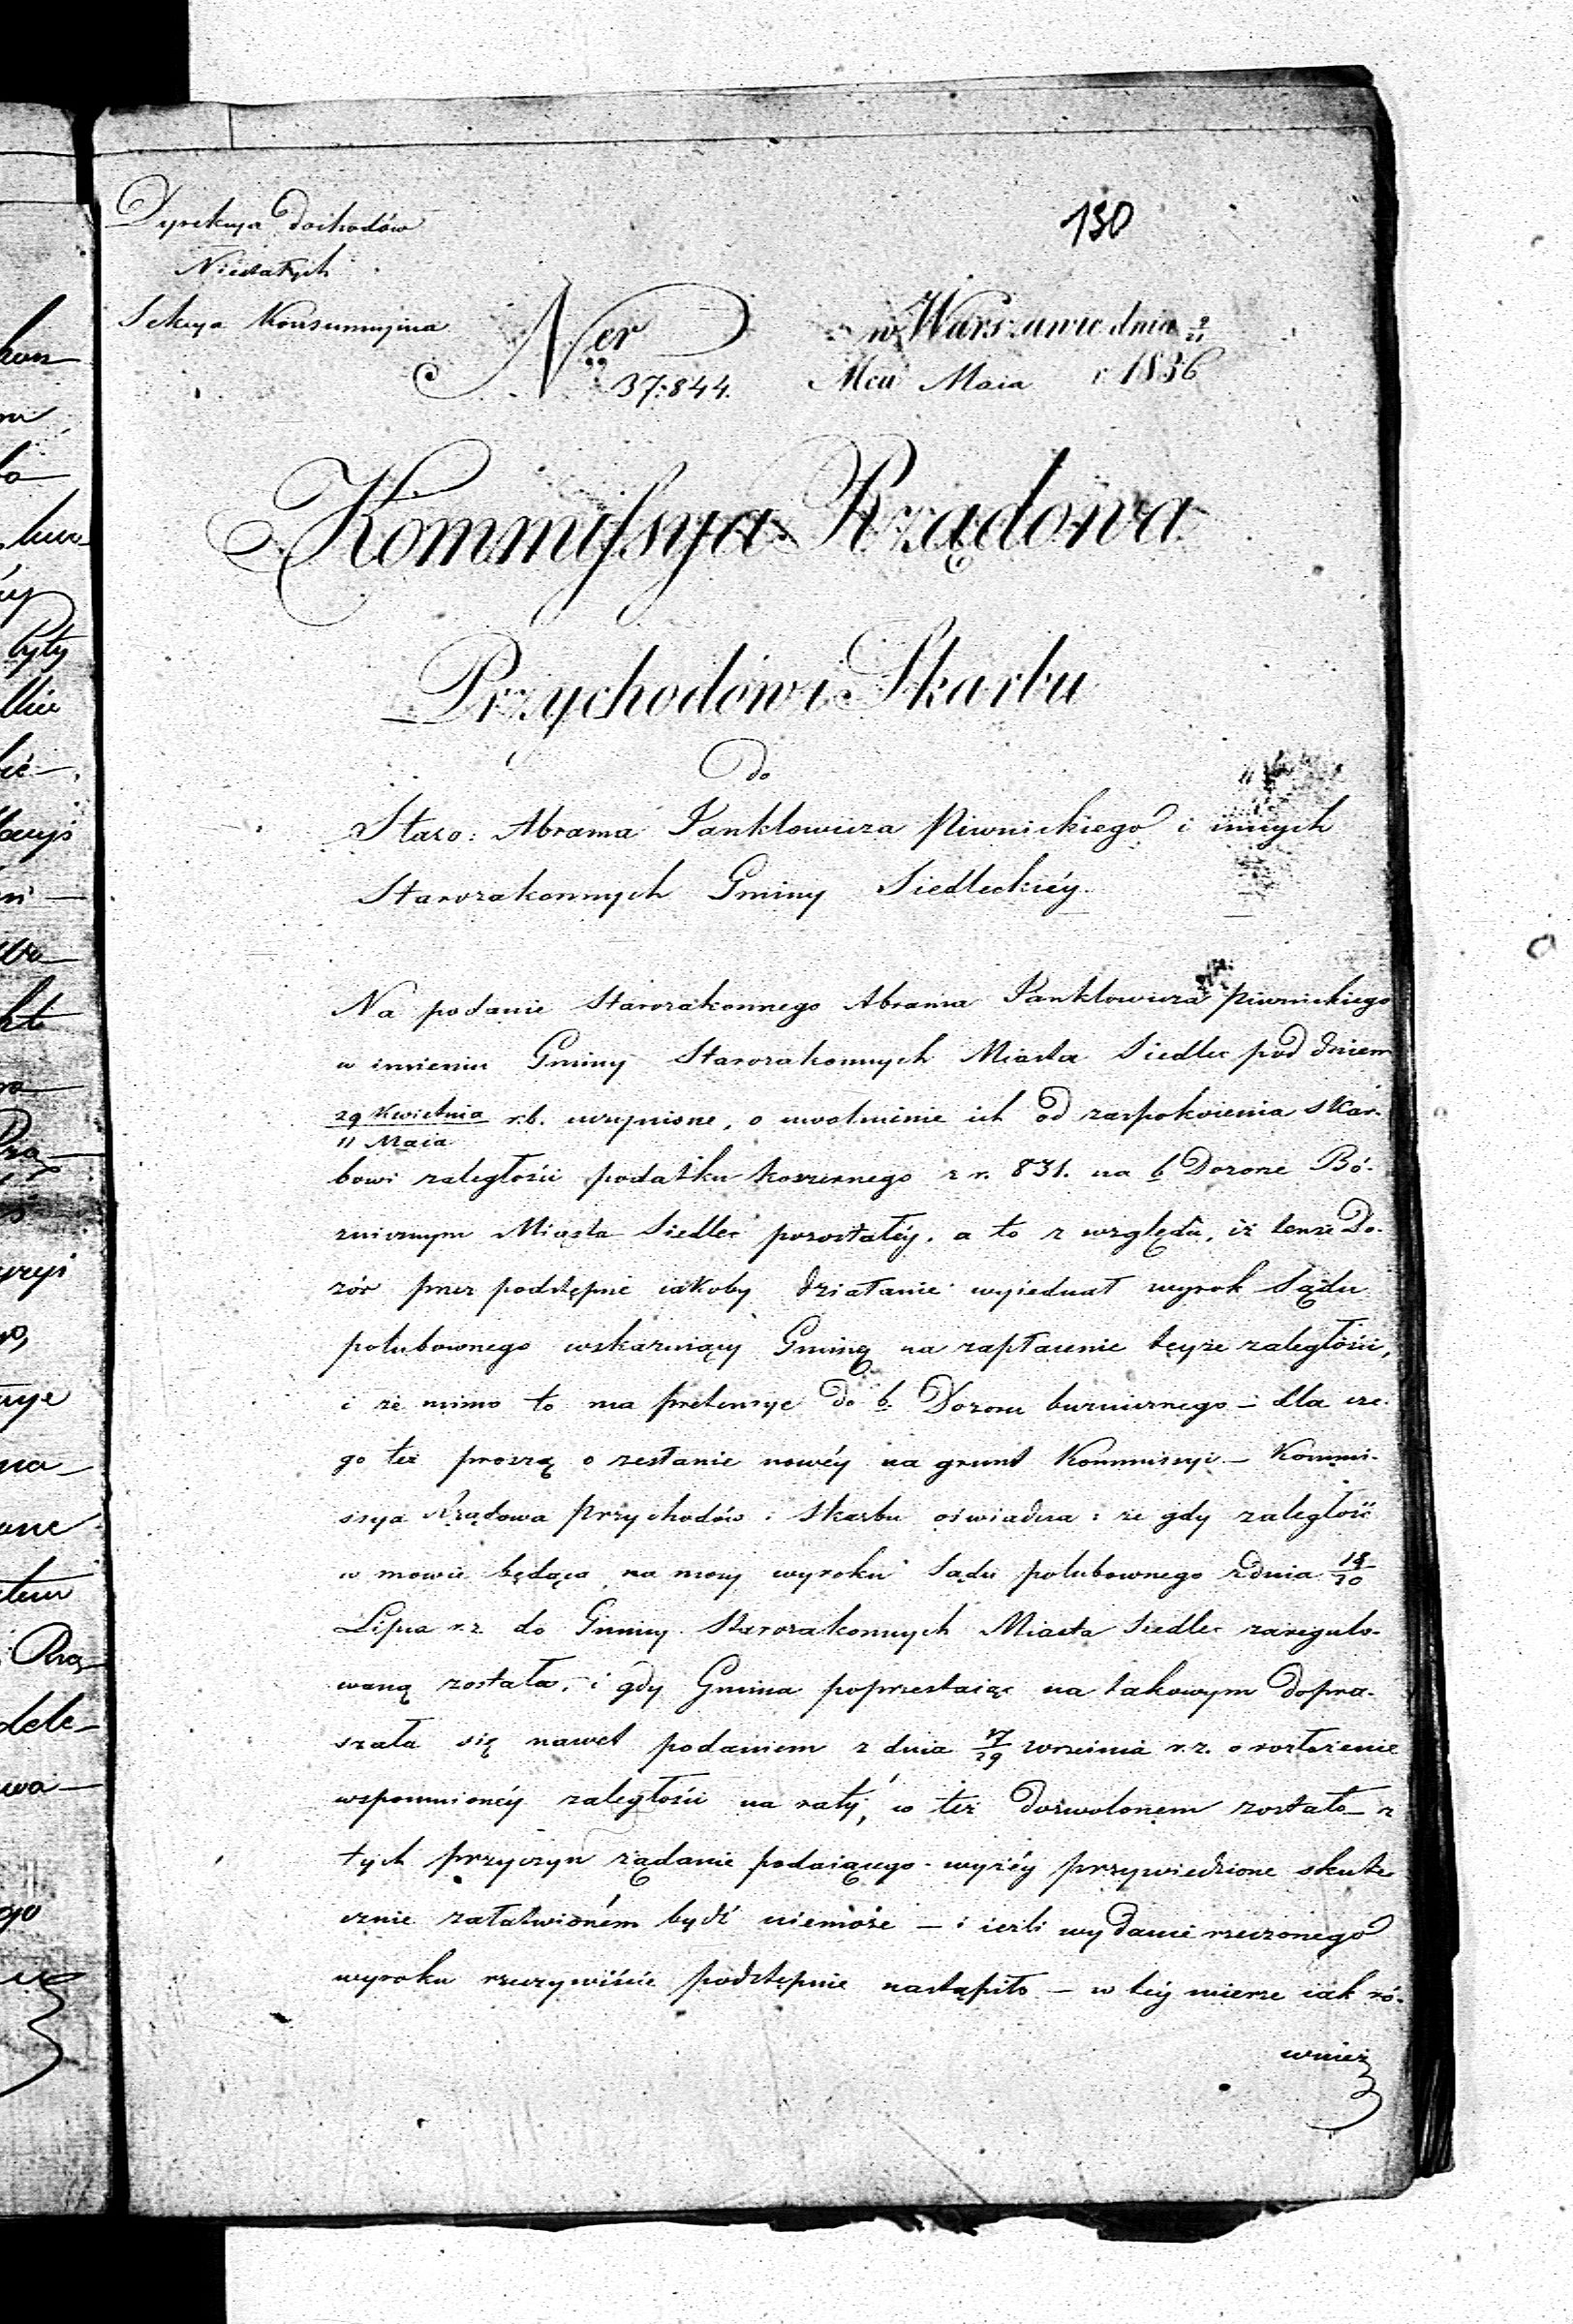 Dyrekcya Dochodów
Niestałych
Sekcya Konsumcyina
130
Ner
37.844.
w Warszawie dnia 9/21
Mca Maia r 1836
Kommissya Rządowa
Przychodów i Skarbu
do
Staro: Abrama Janklowicza Piwnickiego i innych
Starozakonnych Gminy Siedleckiéy.
Na podanie Starozakonnego Abrama Janklowicza Piwnickiego
w imieniu Gminy Starozakonnych Miasta Siedlec pod dniem
29 Kwietnia / 11 Maia r.b. uczynione, o uwolnienie ich od zaspokoienia Skar-
bowi zaległości podatku koszernego z r. 831. na b. Dozorze Bó-
żnicznym Miasta Siedlec pozostałéy, a to z względu, iż tenże Do-
zór przez podstępne iakoby działanie wyiednał wyrok Sądu
polubownego wskazuiący Gminę na zapłacenie teyże zaległości,
i że mimo to ma pretensye do b. Dozoru bużnicznego – dla cze-
go też proszą o zesłanie nowéy na grunt Kommissyi – Kommi-
ssya Rządowa Przychodów i Skarbu oświadcza: że gdy zaległość
w mowie będąca na mocy wyroku Sądu polubownego z dnia 18/30
Lipca r.z. do Gminy Starozakonnych Miasta Siedlec zaregulo-
waną została, i gdy Gmina poprzestaiąc na takowym dopra-
szała się nawet podaniem z dnia 17/29 Września r.z. o rozłożenie
wspomnionéy zaległości na raty, co też dozwolonem zostało – z
tych przyczyn żądanie podaiącego wyżéy przywiedzione skute
cznie załatwioném bydź niemoże – i ieżli wydanie rzeczonego
wyroku rzeczywiście podstępnie nastąpiło – w téy mierze iak ró-
wnież